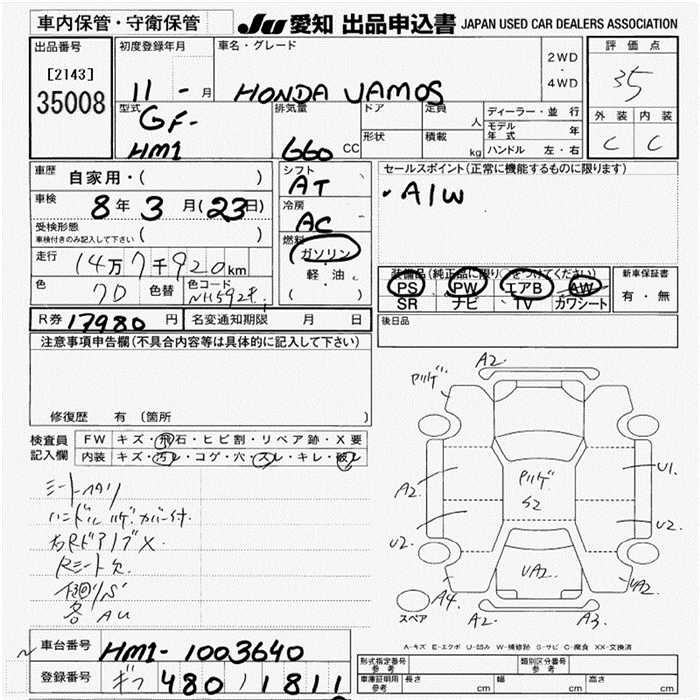 車内保管・守衛保管
JU 愛知 出品申込書 JAPAN USED CAR DEALERS ASSOCIATION
出品番号
[2143]
35008
初度登録年月
11 - 月
車名・グレード
HONDA VAMOS
2WD
・
4WD
評価点
35
外装 内装
C C
型式
GF-
HM1
排気量
660 CC
ドア
形状
定員 人
積載 kg
ディーラー・並行
モデル年式 年
ハンドル 左・右
車歴
自家用・( )
車検
8年 3月(23日)
受検形態
車検付きのみ記入して下さい ( )
走行
14万7千920km
色 色替 色コード
シフト
AT
冷房
AC
燃料
ガソリン
軽油
( )
セールスポイント(正常に機能するものに限ります)
・A/W
装備品(純正品に限り○をつけてください)
PS PW エアB AW
SR ナビ TV カワシート
新車保証書
有・無
R券 17980 円 名変通知期限 月 日
後日品
注意事項申告欄(不具合内容等は具体的に記入して下さい)
修復歴 有 (箇所 )
検査員
記入欄
FW キズ・飛石・ヒビ割・リペア跡・X要
内装 キズ・汚レ・コゲ・穴・スレ・キレ・破レ
A2
A2
U2
A4
A2
A3
UA2
U2
U1
S2
UA2
スペア
A-キズ E-エクボ U-凹み W-補修跡 S-サビ C-腐食 XX-交換済
車台番号
HM1-1003640
登録番号
480 1811
形式指定番号
参考
類別区分番号
参考
車庫証明用
参考
長さ cm
幅 cm
高さ cm